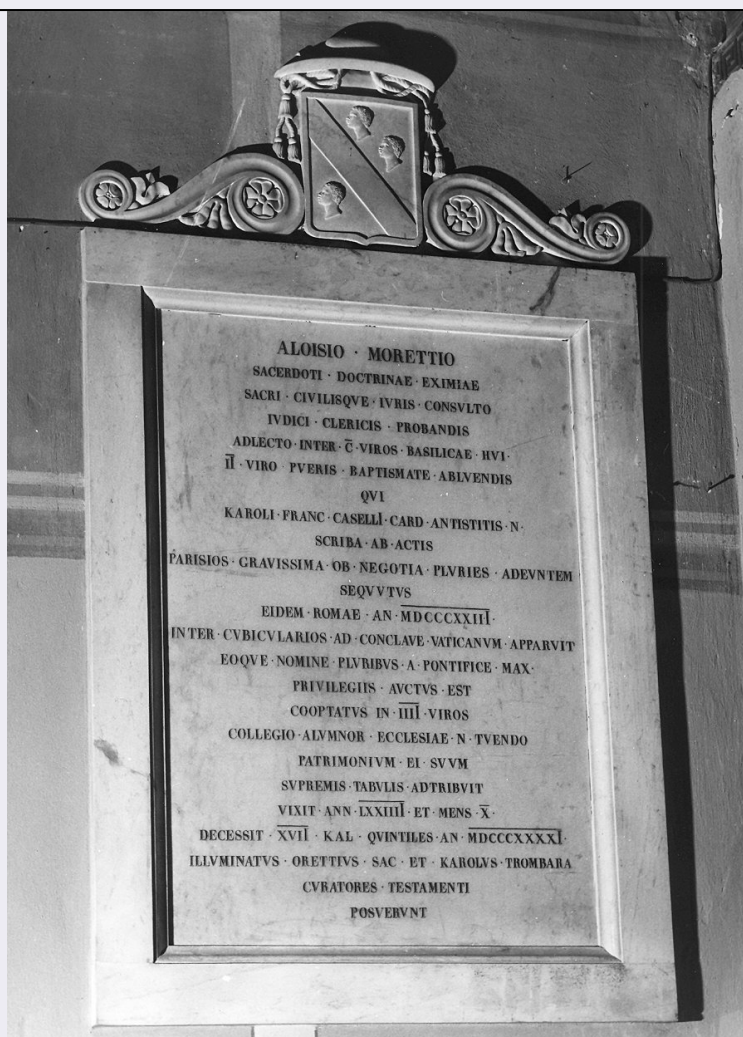 ALOISIO · MORETTIO
SACERDOTI · DOCTRINAE · EXIMIAE
SACRI · CIVILISQVE · IVRIS · CONSVLTO
IVDICI · CLERICIS · PROBANDIS
ADLECTO · INTER · C̅ · VIROS · BASILICAE · HVI ·
I̅I̅ · VIRO PVERIS · BAPTISMATE · ABLVENDIS
QVI
KAROLI · FRANC · CASELLI · CARD · ANTISTITIS · N ·
SCRIBA · AB · ACTIS
PARISIOS · GRAVISSIMA · OB · NEGOTIA · PLVRIES · ADEVNTEM
SEQVVTVS
EIDEM · ROMAE · AN · M̅D̅C̅C̅C̅X̅X̅I̅I̅I̅ ·
INTER · CVBICVLARIOS · AD · CONCLAVE · VATICANVM · APPARVIT
EOQVE · NOMINE · PLVRIBVS · A · PONTIFICE · MAX ·
PRIVILEGIIS · AVCTVS · EST
COOPTATVS IN · I̅I̅I̅I̅ · VIROS
COLLEGIO · ALVMNOR · ECCLESIAE · N · TVENDO
PATRIMONIVM · EI · SVVM
SVPREMIS · TABVLIS · ADTRIBVIT
VIXIT · ANN · L̅X̅X̅I̅I̅I̅I̅ · ET · MENS · X̅ ·
DECESSIT · X̅V̅I̅I̅ · KAL · QVINTILES · AN · M̅D̅C̅C̅C̅X̅X̅X̅X̅I̅ ·
ILLVMINATVS · ORETTIVS · SAC · ET · KAROLVS · TROMBARA
CVRATORES · TESTAMENTI
POSVERVNT